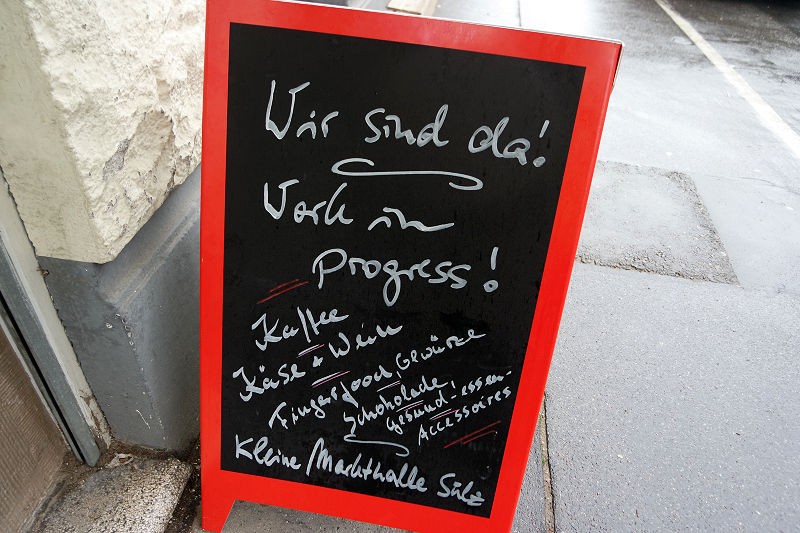 Wir sind da!
Work in
Progress!
Kaffee
Käse + Wein
Fingerfood, Gewürze
Schokolade,
gesund-essen-
Accessoires
Kleine Markthalle Sülz